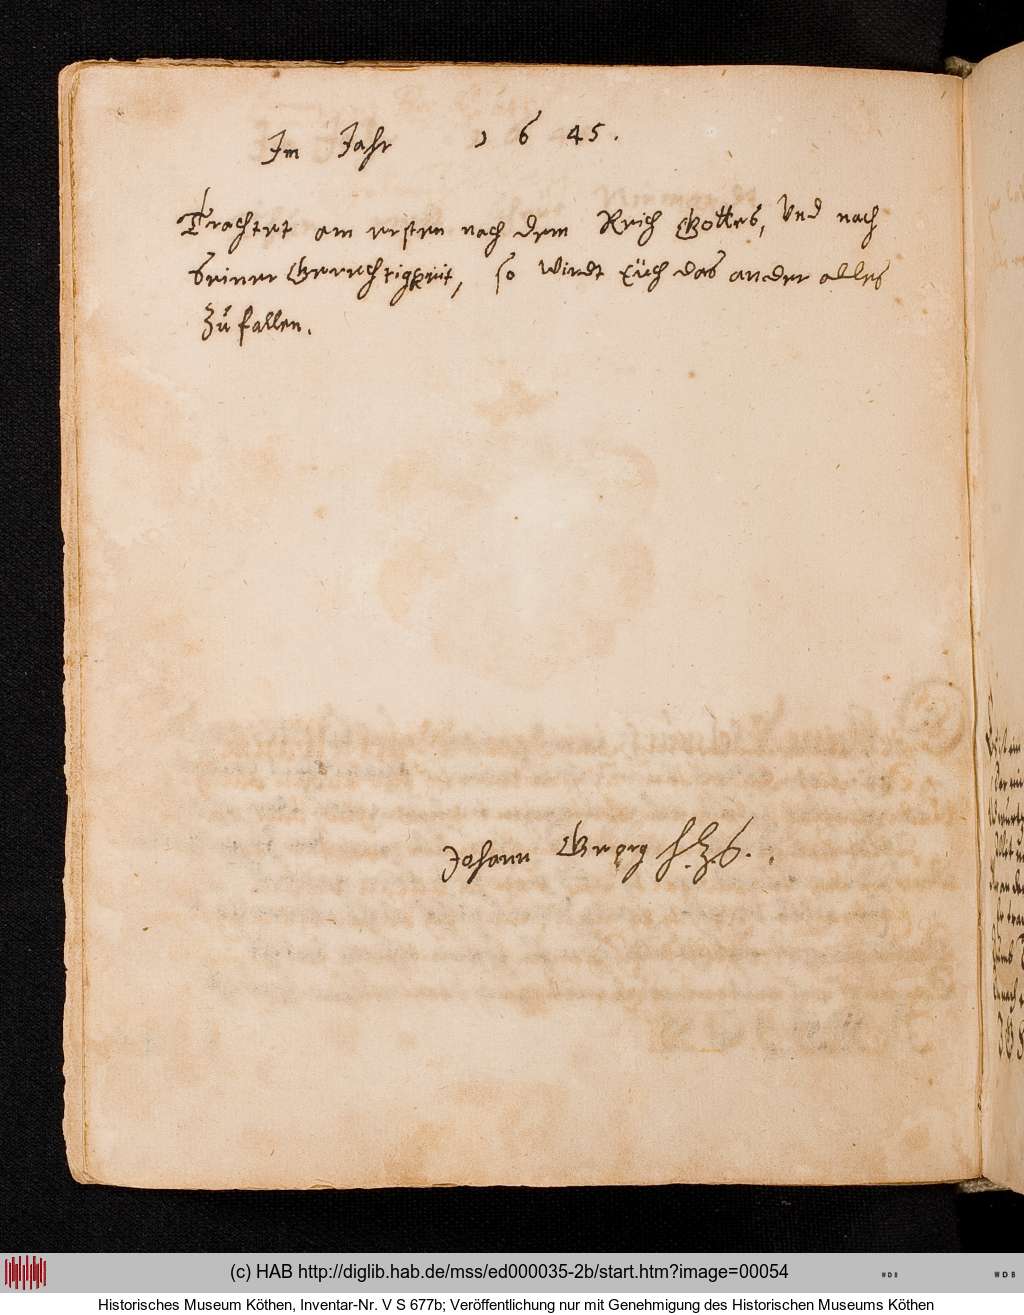 Im Jahr 1645.
Trachtet am ersten nach dem Reich Gottes, Und nach
seiner Gerechtigkeit, so wirdt eüch das ander alles
zũ fallen.
Johann Georg H.z.S.
(c) HAB http://diglib.hab.de/mss/ed000035-2b/start.htm?image=00054
WDB
WDB
Historisches Museum Köthen, Inventar-Nr. V S 677b; Veröffentlichung nur mit Genehmigung des Historischen Museums Köthen